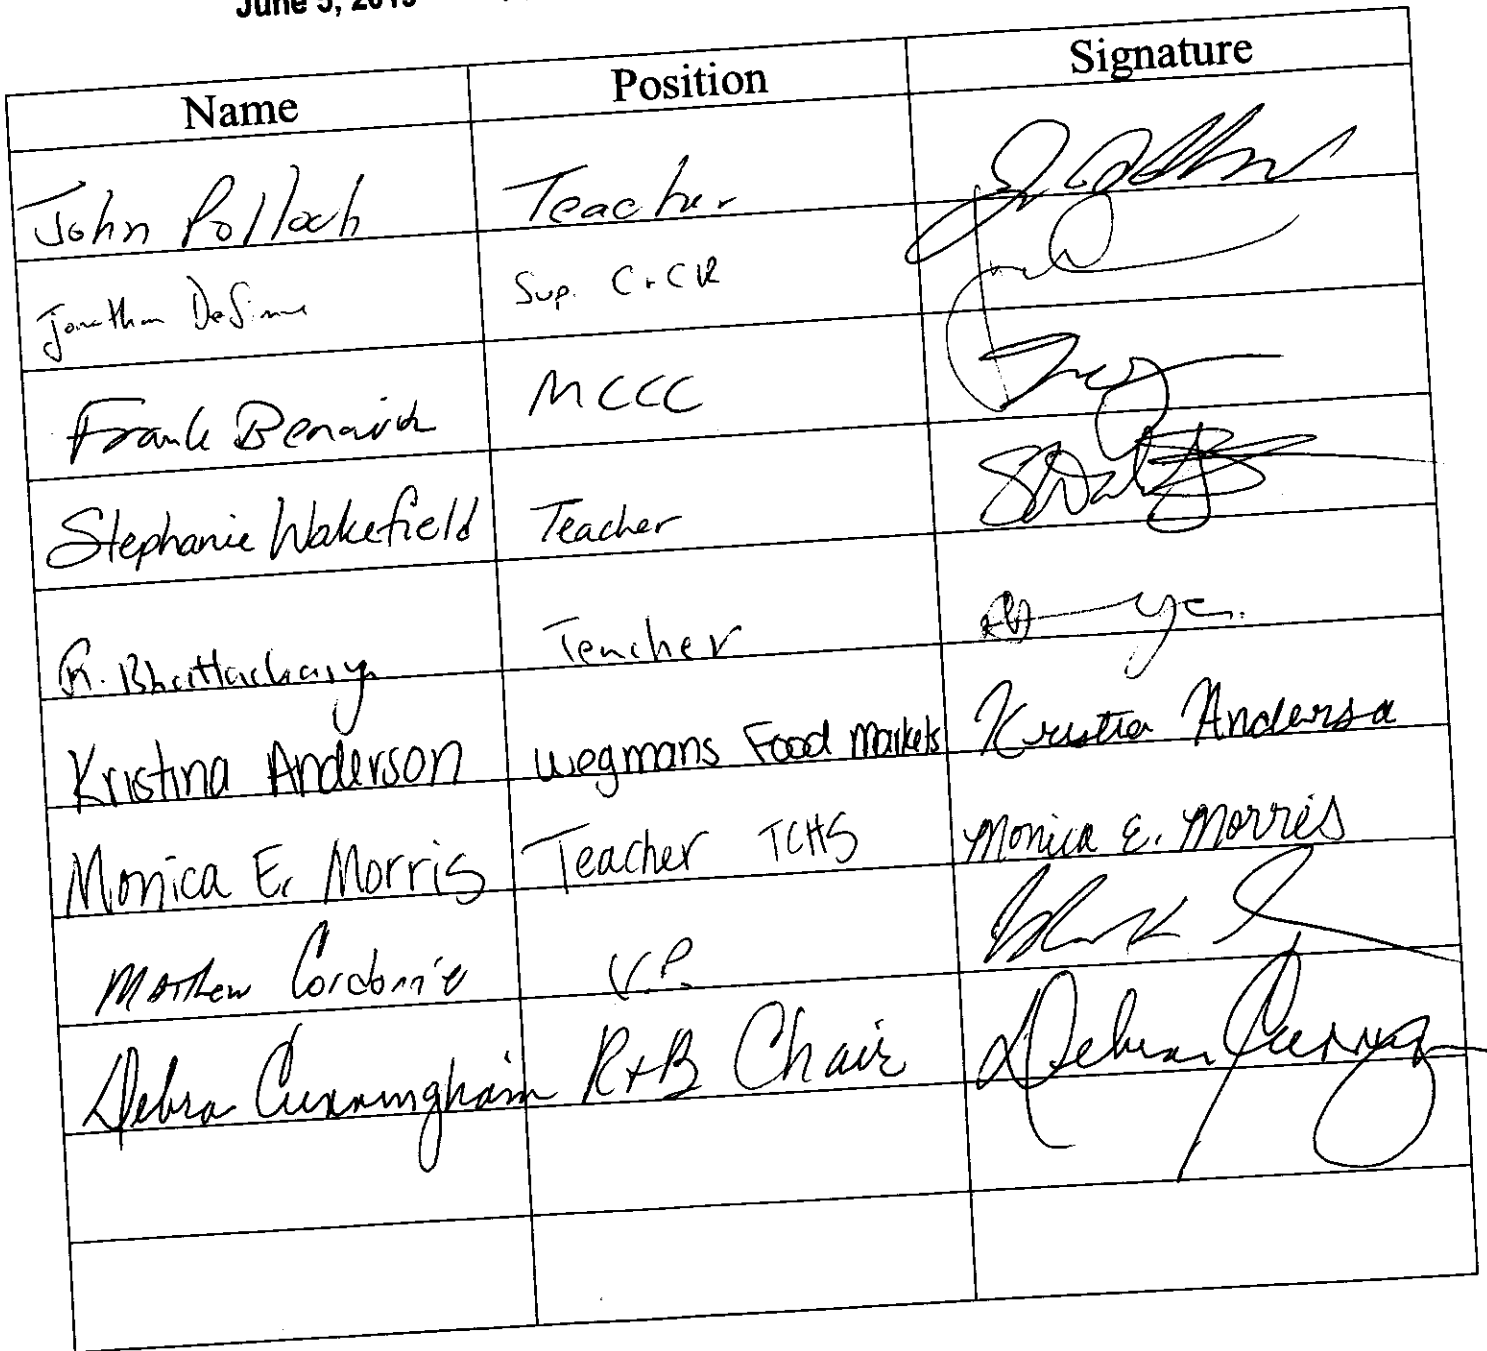 June 5, 2019
Name Position Signature
John Pollock Teacher
Jonathan DeSimone Sup. C+CR
Frank MCCC
Stephanie Wakefield Teacher
R. Bhattacharya Teacher
Kristina Anderson Wegmans Food Markets Kristina Anderson
Monica E. Morris Teacher TCHS Monica E. Morris
Matthew V.P.
Debra Cunningham R+B Chair Debra